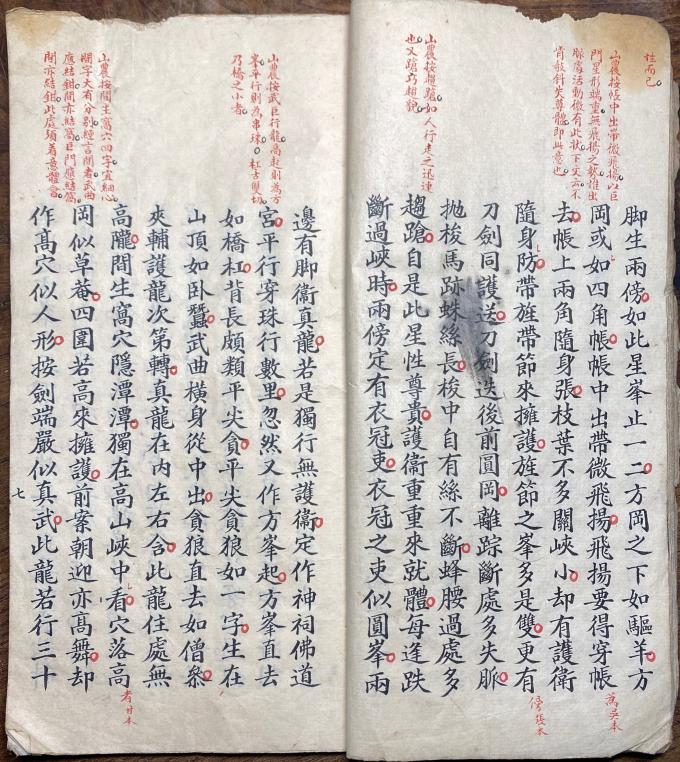 性而已
山農按帳中出帶微飛揚以巨
門星形端重無飛揚之勢惟出
脈處活動微有此狀下文云不
肯敧針失尊體即此意也
山農按趨蹌如人行走之迅速
也又蹌巧趨貌
脚生兩傍如此星峯止一二方岡之下如驅羊方
岡或如四角帳帳中出帶微飛揚飛揚要得穿帳
為吳本
去帳上兩角隨身張枝葉不多關峽小却有護衛
隨身防帶旌帶節來擁護旌節之峯多是雙更有
傍張本
刀劍同護送刀劍迭後前圓岡離踪斷處多失脈
拋梭馬跡蛛絲長梭中自有絲不斷蜂腰過處多
趨蹌自是此星性尊貴護衛重重來就體每逢跌
斷過峽時兩傍定有衣冠吏衣冠之吏似圓峯兩
山農按武巨行龍高起則為方
峯平行則為串珠 杠古雙切
乃橋之小者
山農按間生窩穴四字宜細心
間字大有分別經言間者武曲
應結鉗間亦結窩巨門應結窩
間亦結鉗此處須着意體會
邊有脚衞真龍若是獨行無護衞定作神祠佛道
宮平行穿珠行數里忽然又作方峯起方峯直去
如橋杠背長頗類平尖貪平尖貪狼如一字生在
山頂如卧蠶武曲橫身從中出貪狼直去如僧叅
夾輔護龍次第轉真龍在內左右含此龍住處無
高隴間生窩穴隱潭潭獨在高山峽中看穴落高
岡似草菴四圍若高來擁護前案朝迎亦高舞却
作高穴似人形按劍端嚴似真武此龍若行三十
七